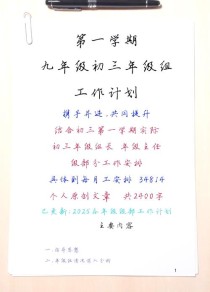 第一学期
九年级初三年级组
工作计划
携手并进、共同提升
结合初三第一学期实际
初三年级组长 年级主任
级部分工作安排
具体到每月工安排 34814
个人原创文章 共2400字
已更新:2025春年级级部工作计划
主要内容
一、指导思想
1